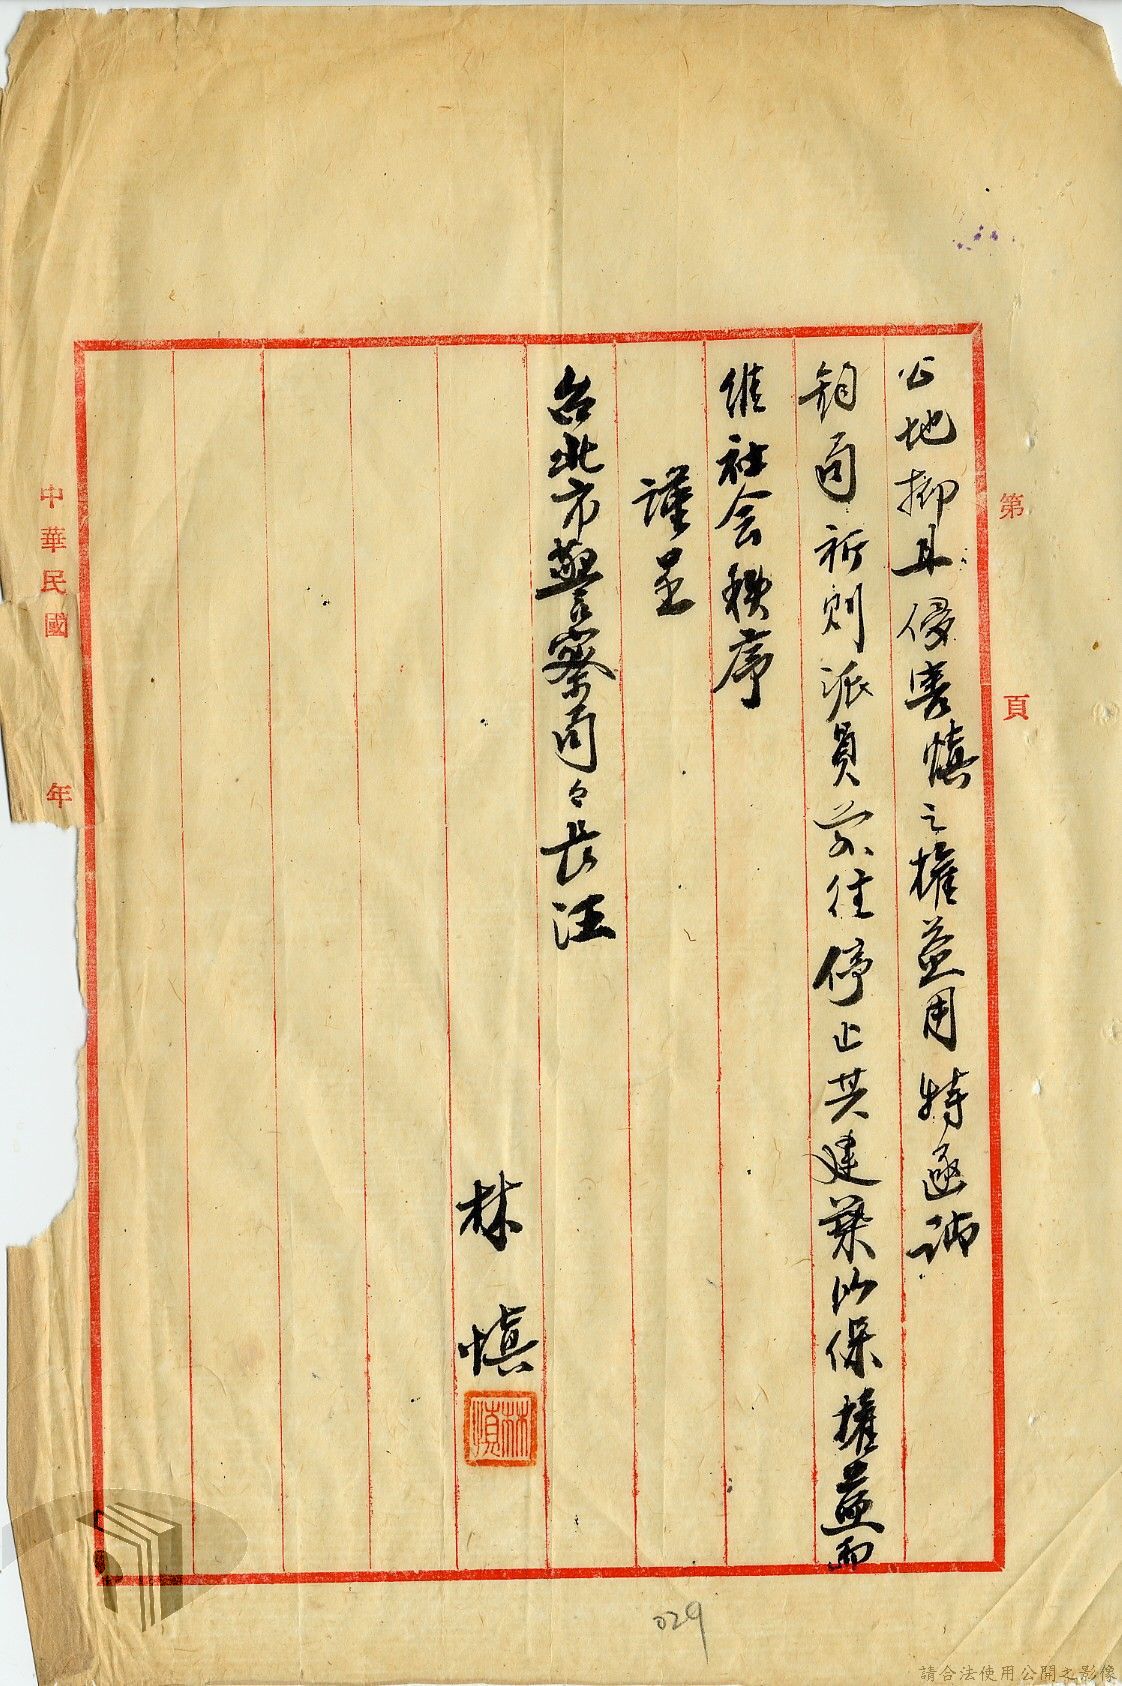 第 頁
公地抑且侵害慎之權益用特函請
鈞局祈則派員前往停止其建築以保權益而
維社会秩序
謹呈
台北市警察局々長汪
林 慎
林慎
中華民國 年
029
請合法使用公開之影像